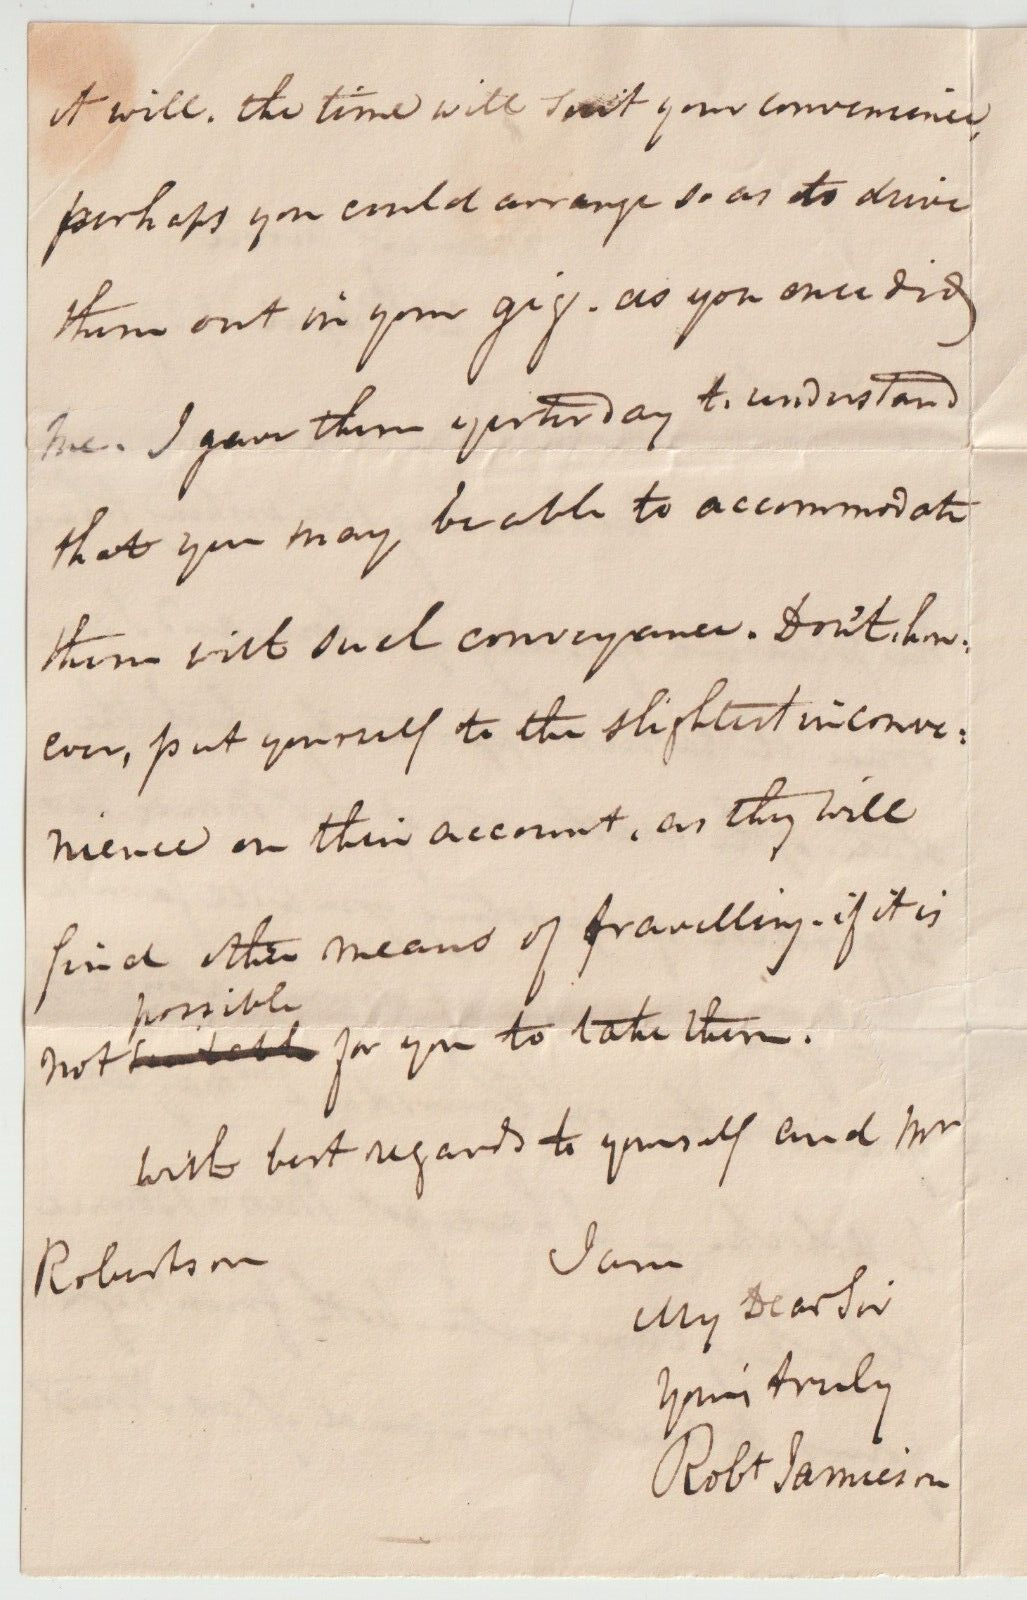 it will. the time will suit your convenience,
perhaps you could arrange so as to drive
them out in your gig. as you once did
me. I gave them yesterday to understand
that you may be able to accommodate
them with such conveyance. Don't, how:
ever, put yourself to the slightest inconve:
nience on their account, as they will
find other means of travelling. if it is
possible
not suitable for you to take them.
With best regards to yourself and Mr
Robertson
I am
My Dear Sir
Yours truly
Robt Jamieson